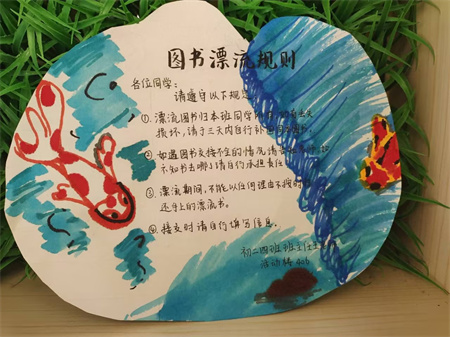 图书漂流规则
各位同学：
请遵守以下规定
①. 漂流图书归本班同学所有，如有丢失
损坏，请于三天内自行补
②. 如遇图书交接不全的情况请
不知书去哪了请自行承担责任
③. 漂流期间，不能以任何理由不按时
还手上的漂流书。
④. 接交时请自行填写信息。
初二四班班主任
活动楼406